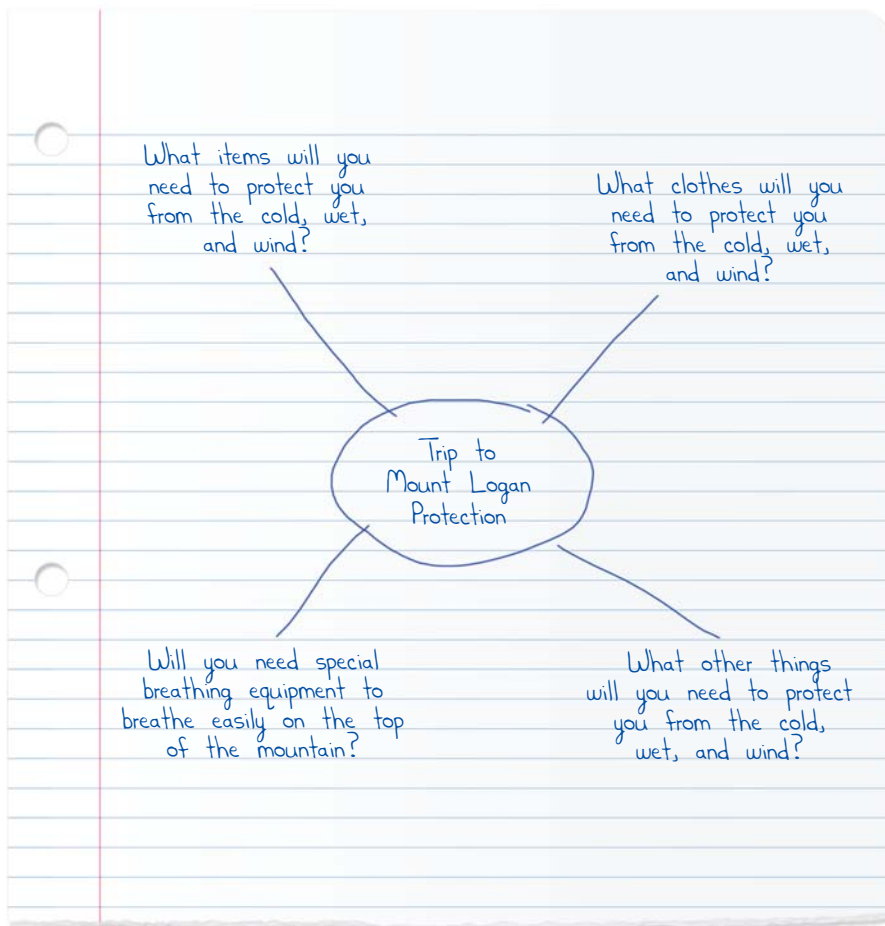 What items will you
need to protect you
from the cold, wet,
and wind?
What clothes will you
need to protect you
from the cold, wet,
and wind?
Trip to
Mount Logan
Protection
Will you need special
breathing equipment to
breathe easily on the top
of the mountain?
What other things
will you need to protect
you from the cold,
wet, and wind?